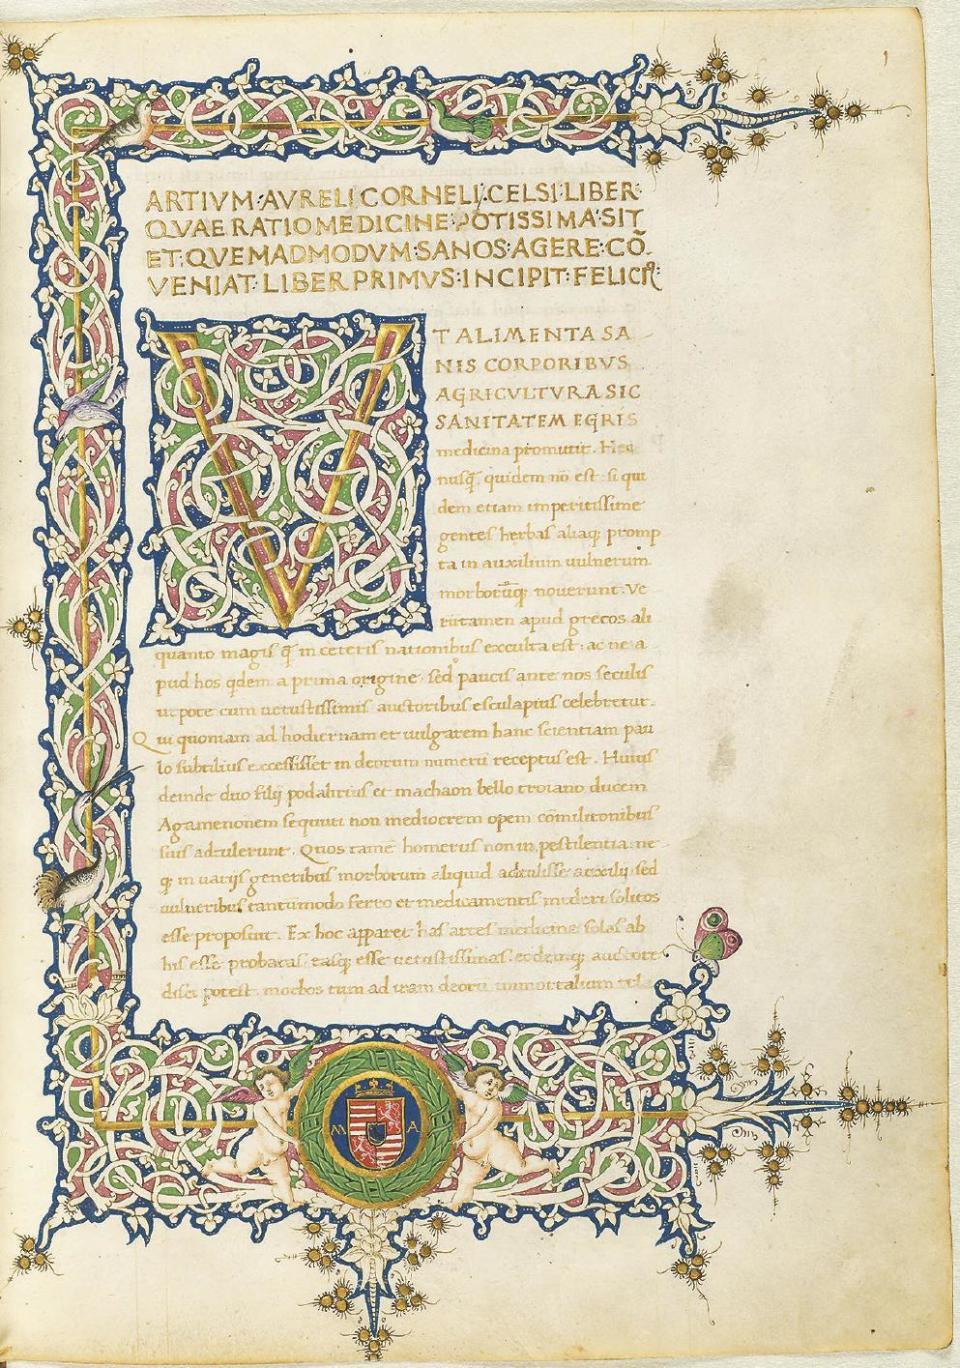 ARTIVM·AVRELI CORNELI·CELSI·LIBER·
QVAE RATIO MEDICINE·POTISSIMA·SIT
ET·QVEMADMODVM·SANOS·AGERE·CŌ
VENIAT·LIBER PRIMVS·INCIPIT·FELICIT̄
VT ALIMENTA SA
NIS CORPORIBVS
AGRICVLTVRA SIC
SANITATEM EGRIS
medicina promittit. Hec
nusq̄ quidem nō est: si qui
dem etiam imperitissime
gentes herbas aliaq; promp
ta in auxilium uulnerum
morborūq; nouerunt. Ve
rūtamen apud grecos ali
quanto magis q̄ in ceteris nationibus exculta est: ac ne a
pud hos qdem a prima origine. sed paucis ante nos seculis
ut pote cum uetustissimis auctoribus esculapius celebretur.
Qui quoniam ad hodiernam et uulgarem hanc scientiam pau
lo subtilius excessisset in deorum numerū receptus est. Huius
deinde duo filij podalirius et machaon bello troiano ducem
Agamenonem sequuti non mediocrem opem cōmilitonibus
suis adtulerunt. Quos tamē homerus non in pestilentia ne
q; in uarijs generibus morborum aliquid adtulisse auxilij sed
uulneribus tantūmodo ferro et medicamentis mederi solitos
esse proposuit. Ex hoc apparet has artes medicine solas ab
his esse probatas easq; esse uetustissimas. eodemq; auctore
disci potest. morbos tum ad iram deorū immortalium
M A